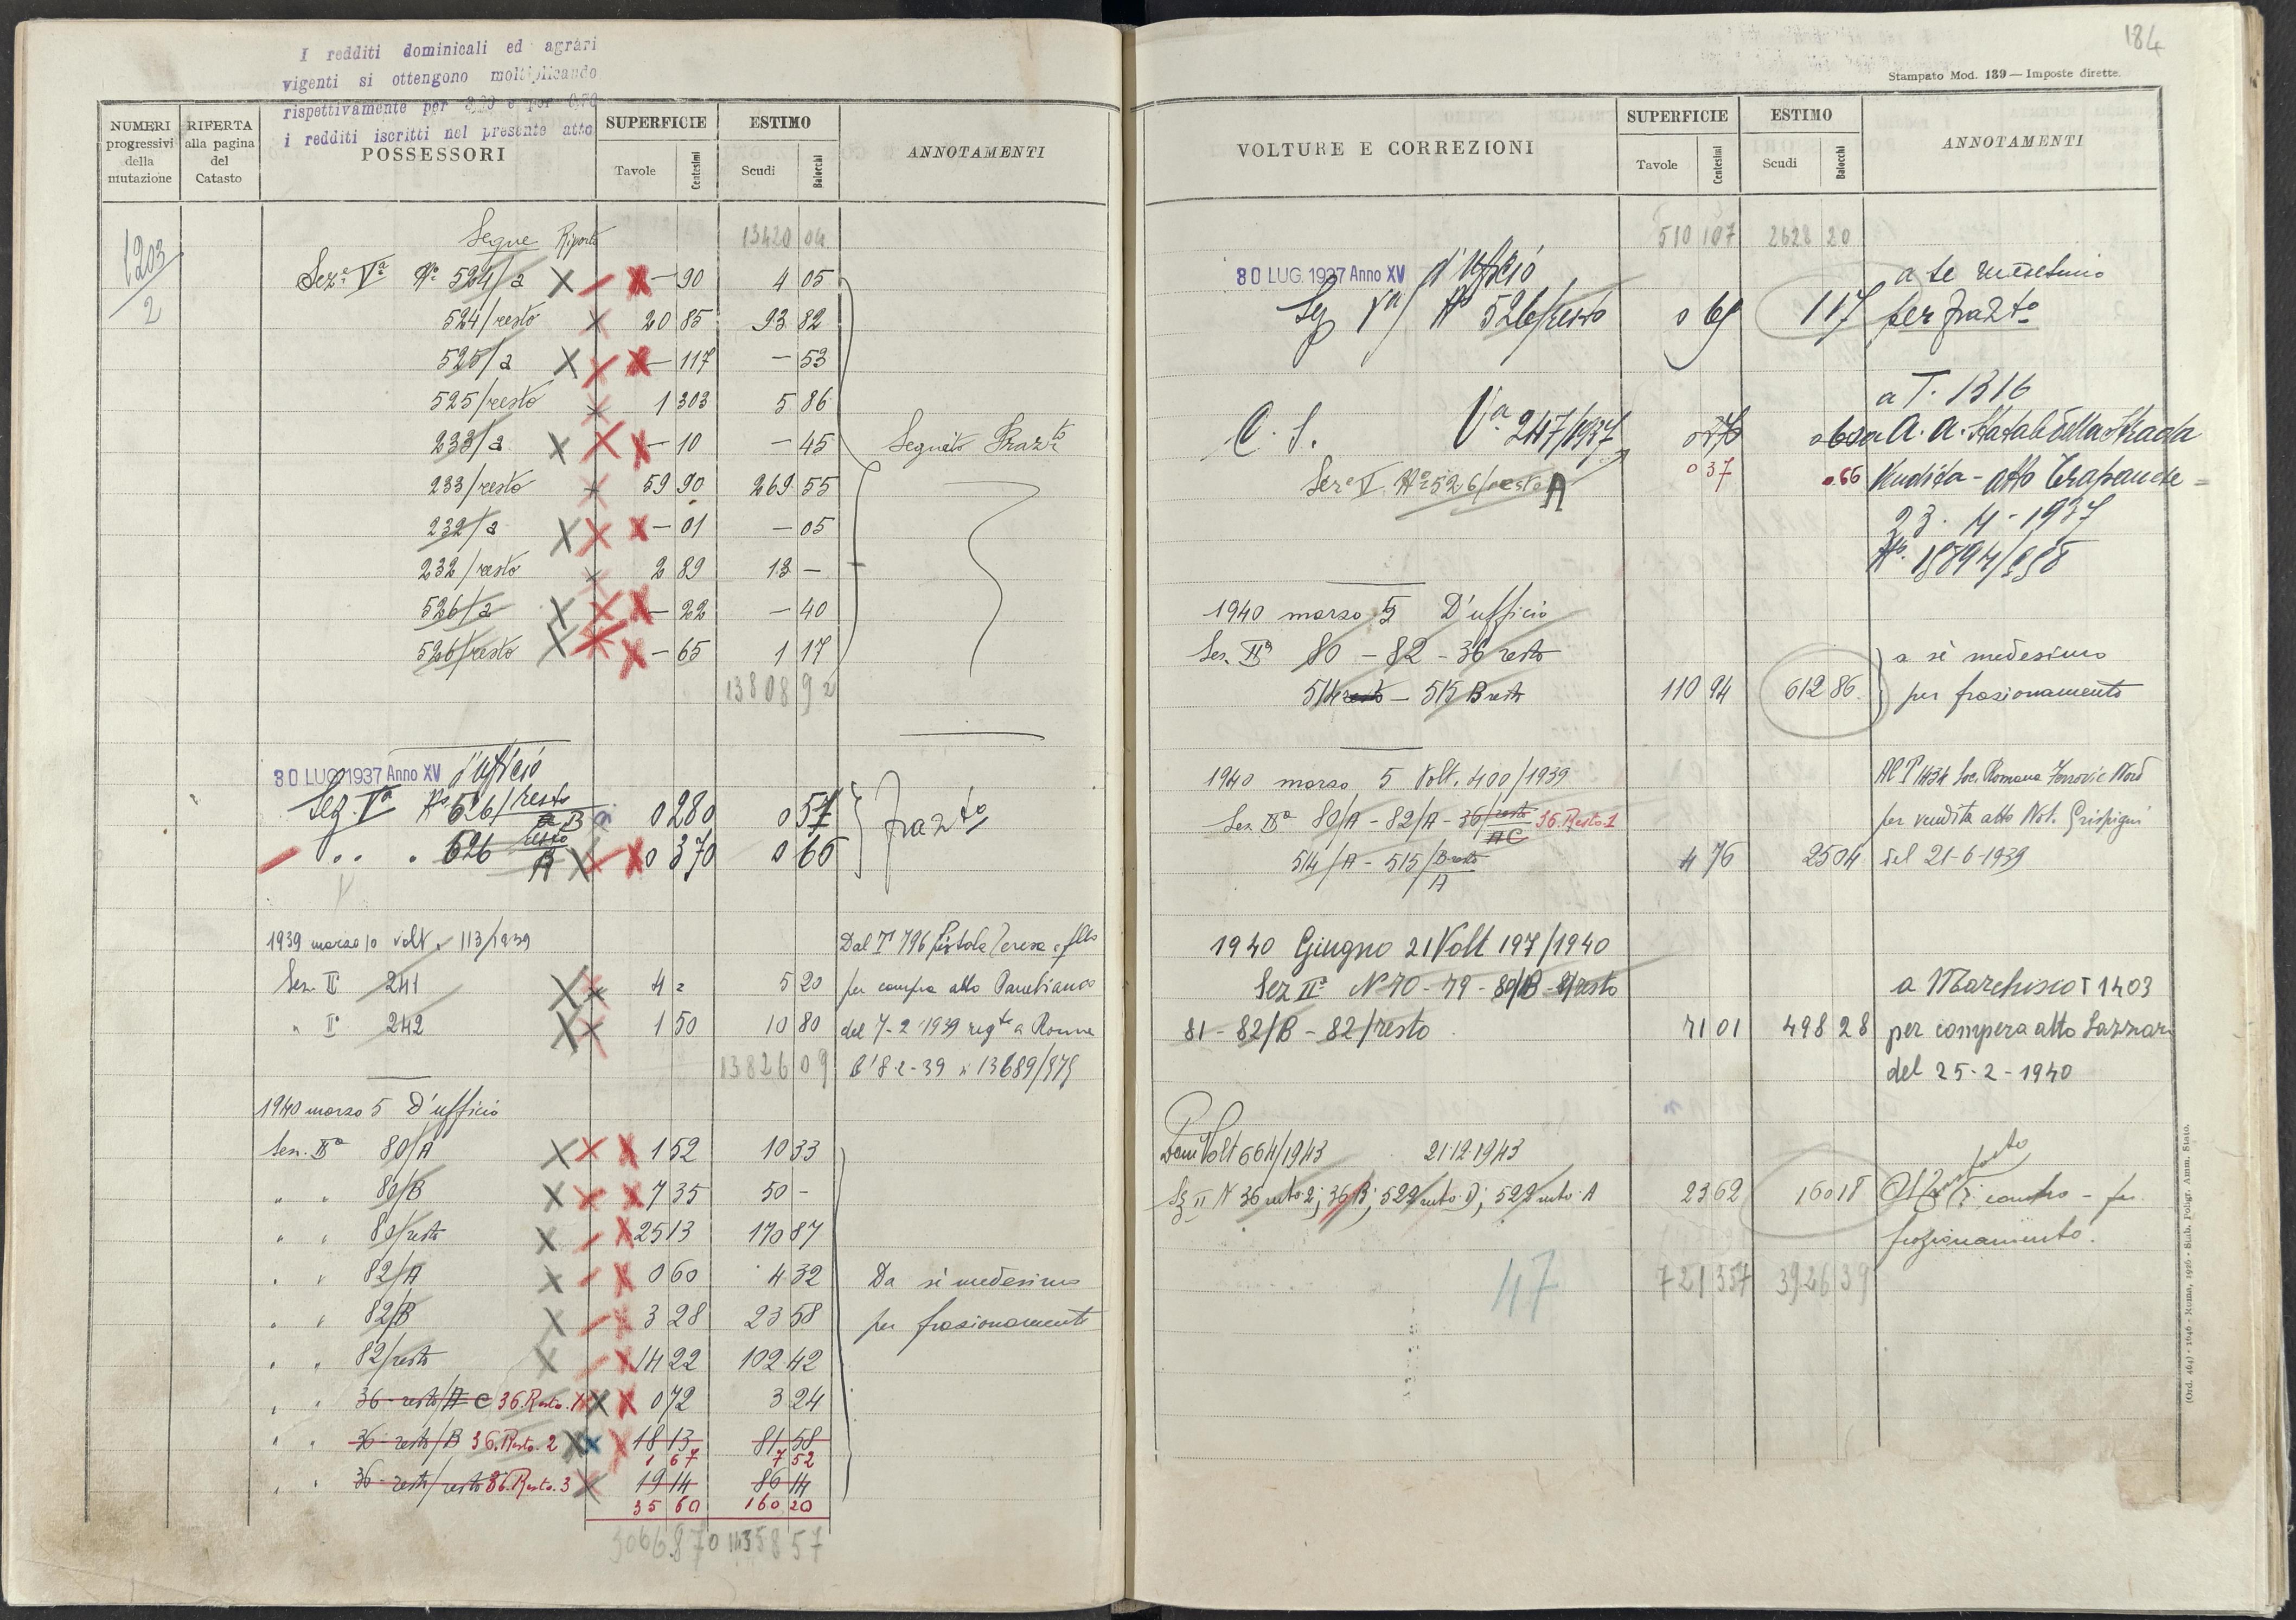 I redditi dominicali ed agrari
vigenti si ottengono moltiplicando
rispettivamente per e per
i redditi iscritti nel presente atto
NUMERI progressivi della mutazione
RIFERTA alla pagina del Catasto
POSSESSORI
SUPERFICIE
Tavole Centesimi
ESTIMO
Scudi Baiocchi
ANNOTAMENTI
1203/2
Segue Riporto 13420 04
Sez.e Va No 524/a — 90 4 05
524/resto 20 85 93 82
525/a — 117 — 53
525/resto 1 303 5 86
233/a — 10 — 45 Seguito Frazto
233/resto 59 90 269 55
232/a — 01 — 05
232/resto 2 89 13 —
526/a — 22 — 40
526/resto — 65 1 17
13808 92
30 LUG 1937 Anno XV d'Ufficio
Sez. Va No 526/resto B 0 280 0 51 frazto
" " " 526 resto A 0 370 0 66
1939 marzo 10 volt. 113/1939 Dal T 796 Pistola Teresa
Sez. II 241 4 = 5 20 per compra atto
" Ia 242 1 50 10 80 del 7-2-1939 regto a Roma
13826 09 l'8-2-39 n 13689/
1940 marzo 5 D'ufficio
Sez. IIa 80/A 1 52 10 33
" " 80/B 7 35 50 —
" " 80/resto 25 13 170 87
" " 82/A 0 60 4 32 Da sè medesimo
" " 82/B 3 28 23 58 per frazionamento
" " 82/resto 14 22 102 42
" " 36-resto/A C 36.Resto.1 0 72 3 24
" " 36-resto/B 36.Resto.2 18 13 81 58
1 67 7 52
" " 36-resto/resto 36.Resto.3 19 14 86 14
35 60 160 20
184
Stampato Mod. 139 — Imposte dirette.
VOLTURE E CORREZIONI
SUPERFICIE
Tavole Centesimi
ESTIMO
Scudi Baiocchi
ANNOTAMENTI
510 107 2628 20
30 LUG. 1937 Anno XV d'Ufficio a se medesimo
Sez Va No 526/resto 0 65 1 17 per frazto
a T. 1316
C. S. Va 247/1937 A. A. Statale della Strada
Sez.e V No 526/resto A 0 37 0.66 Vendita - atto
23. 4 - 1937
1940 marzo 5 D'ufficio
Sez. IIa 80 - 82 - 36 resto a sè medesimo
514 resto - 515 B resto 110 94 612 86 per frazionamento
1940 marzo 5 Volt. 400/1939 Al T 1434 Soc. Romana Ferrovie Nord
Sez. IIa 80/A - 82/A - 36/resto AC 36.Resto.1 per vendita atto Not. Grispigni
514/A - 515/B resto A 4 76 25 04 del 21-6-1939
1940 Giugno 21 Volt 197/1940
Sez IIa No 70 - 79 - 80/B - 8/resto a Marchisio T 1403
81 - 82/B - 82/resto 71 01 498 28 per compera atto Lazzari
del 25-2-1940
Volt 664/1943 21.12.1943
Sz II N 36 resto 2; 36 B; 522 resto D; 522 resto A 23 62 160 18 conto - per
frazionamento.
47 721 357 3926 39
(Ord. 464) - 1646 - Roma, 1926 - Stab. Poligr. Amm. Stato.